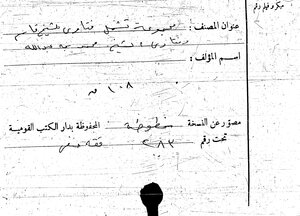 ميكروفيلم رقم
عنوان المصنف : مجموعة تشمل فتاوى الشيخ قاسم
وفتاوى الشيخ محمد بن عبدالله
اسم المؤلف :
١٠٨ ق
مصور عن النسخة مخطوطة المحفوظة بدار الكتب القومية
تحت رقم ٢٨٣ فقه